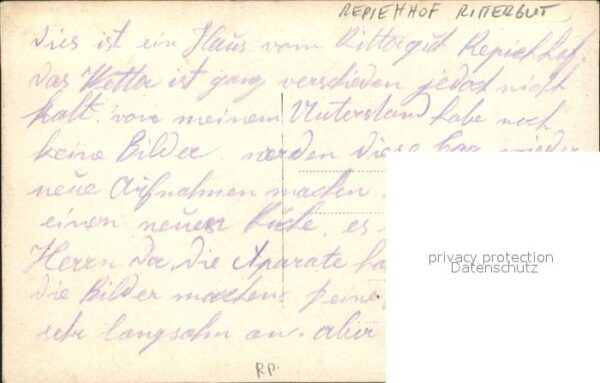 REPIEHHOF RITTERGUT
Dies ist ein Haus vom Rittergut Repiehhof.
Das Wetter ist ganz verschieden jedoch nicht
kalt. von meinem Unterstand habe noch
keine Bilder. werden diese wieder
neue Aufnahmen machen
einen neuen es
Herrn da, die Aparate ha
die Bilder machen.
sehr langsahm an. aber
privacy protection
Datenschutz
RP.